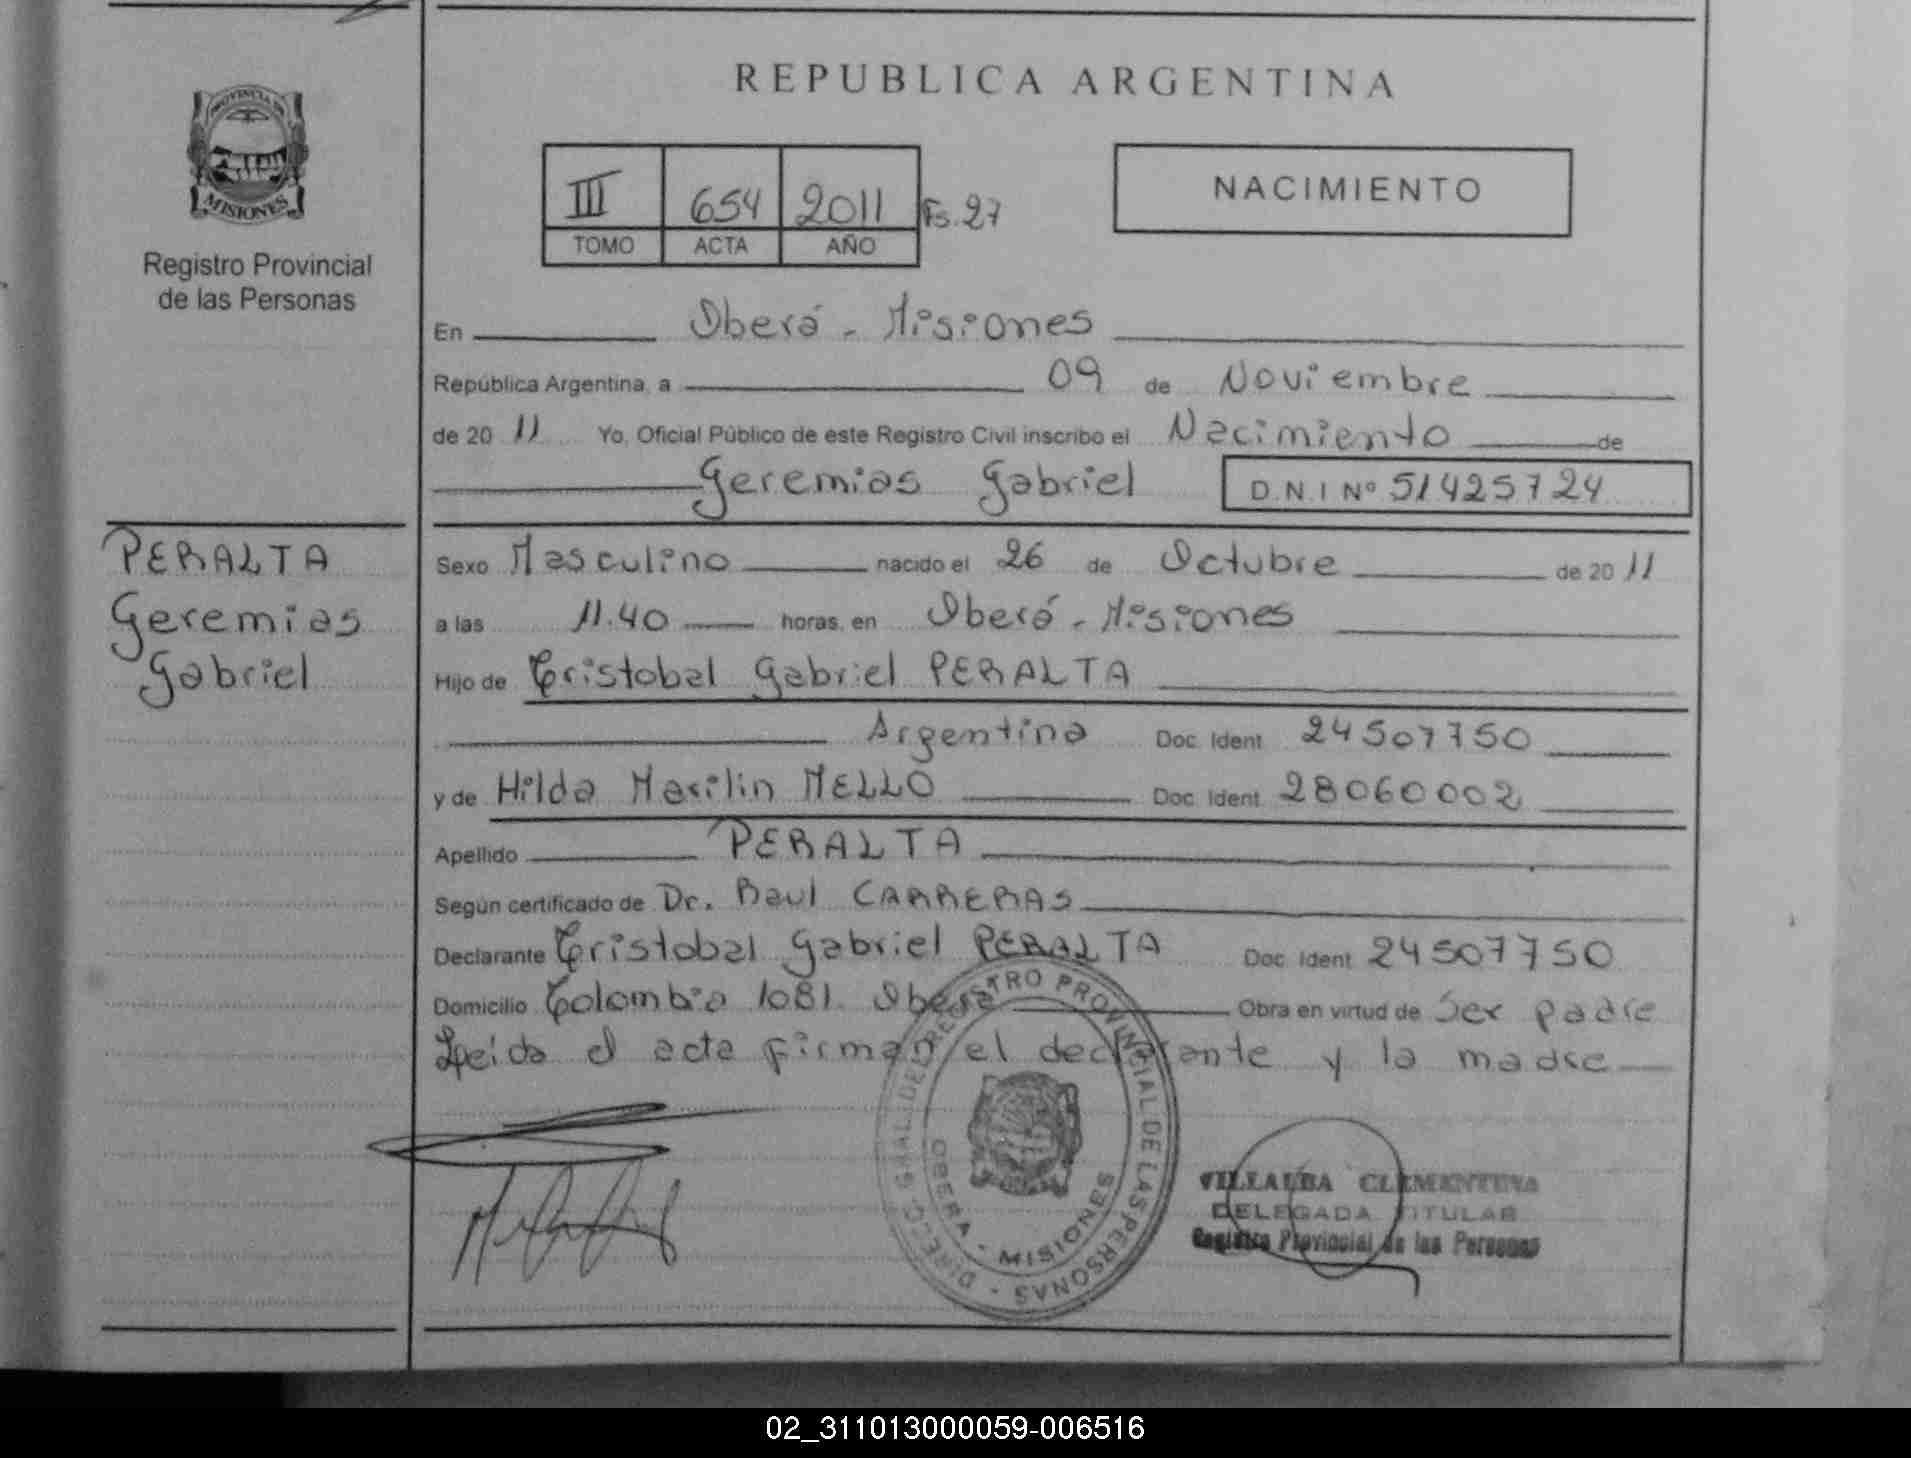 REPUBLICA ARGENTINA
PROVINCIA DE
MISIONES
Registro Provincial
de las Personas
III 654 2011 Fs. 27
TOMO ACTA AÑO
NACIMIENTO
En Oberá - Misiones
República Argentina, a 09 de Noviembre
de 20 11 Yo, Oficial Público de este Registro Civil inscribo el Nacimiento de
Geremias Gabriel D.N.I Nº 51425724
PERALTA
Geremias
Gabriel
Sexo Masculino nacido el 26 de Octubre de 20 11
a las 11.40 horas, en Oberá - Misiones
Hijo de Cristobal Gabriel PERALTA
Argentina Doc. Ident. 24507750
y de Hilda Marilin MELLO Doc. Ident. 28060002
Apellido PERALTA
Según certificado de Dr. Raul CARRERAS
Declarante Cristobal Gabriel PERALTA Doc. Ident. 24507750
Domicilio Colombia 1081. Oberá Obra en virtud de Ser padre
Leída el acta firman el declarante y la madre
DIRECC. GRAL. DEL REGISTRO PROVINCIAL DE LAS PERSONAS
OBERA - MISIONES
VILLALBA CLEMENTINA
DELEGADA TITULAR
Registro Provincial de las Personas
02_311013000059-006516